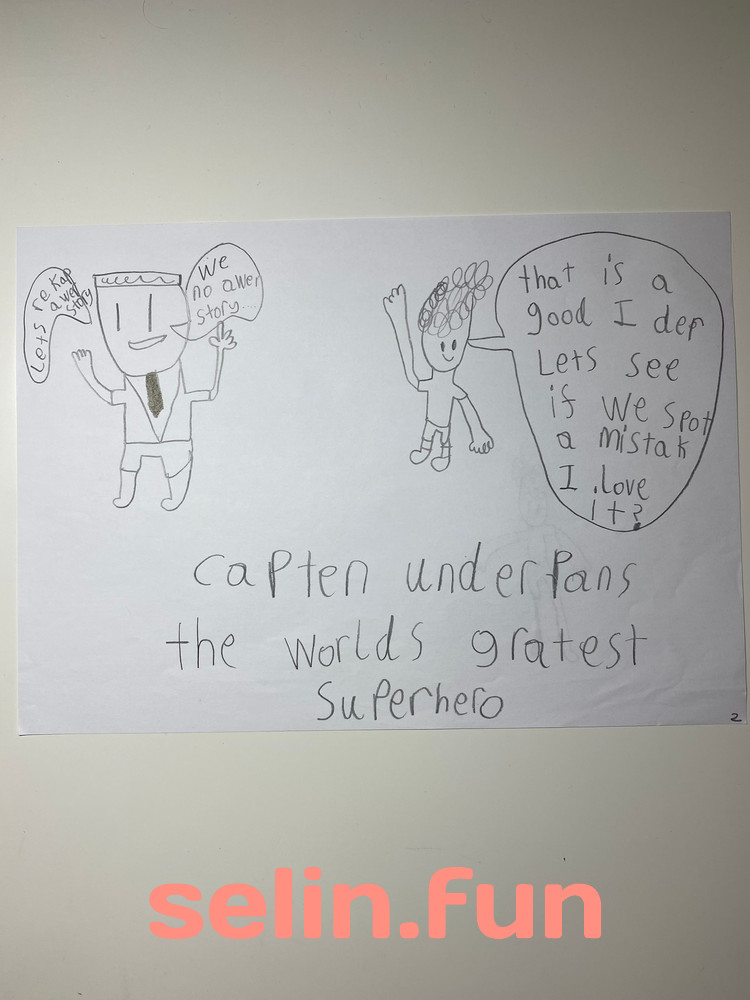 Lets re kap
awer
story
We
no awer
story...
that is a
good I der
Lets see
if we spot
a mistak
I love
it?
capten underpans
the worlds gratest
superhero
2
selin.fun